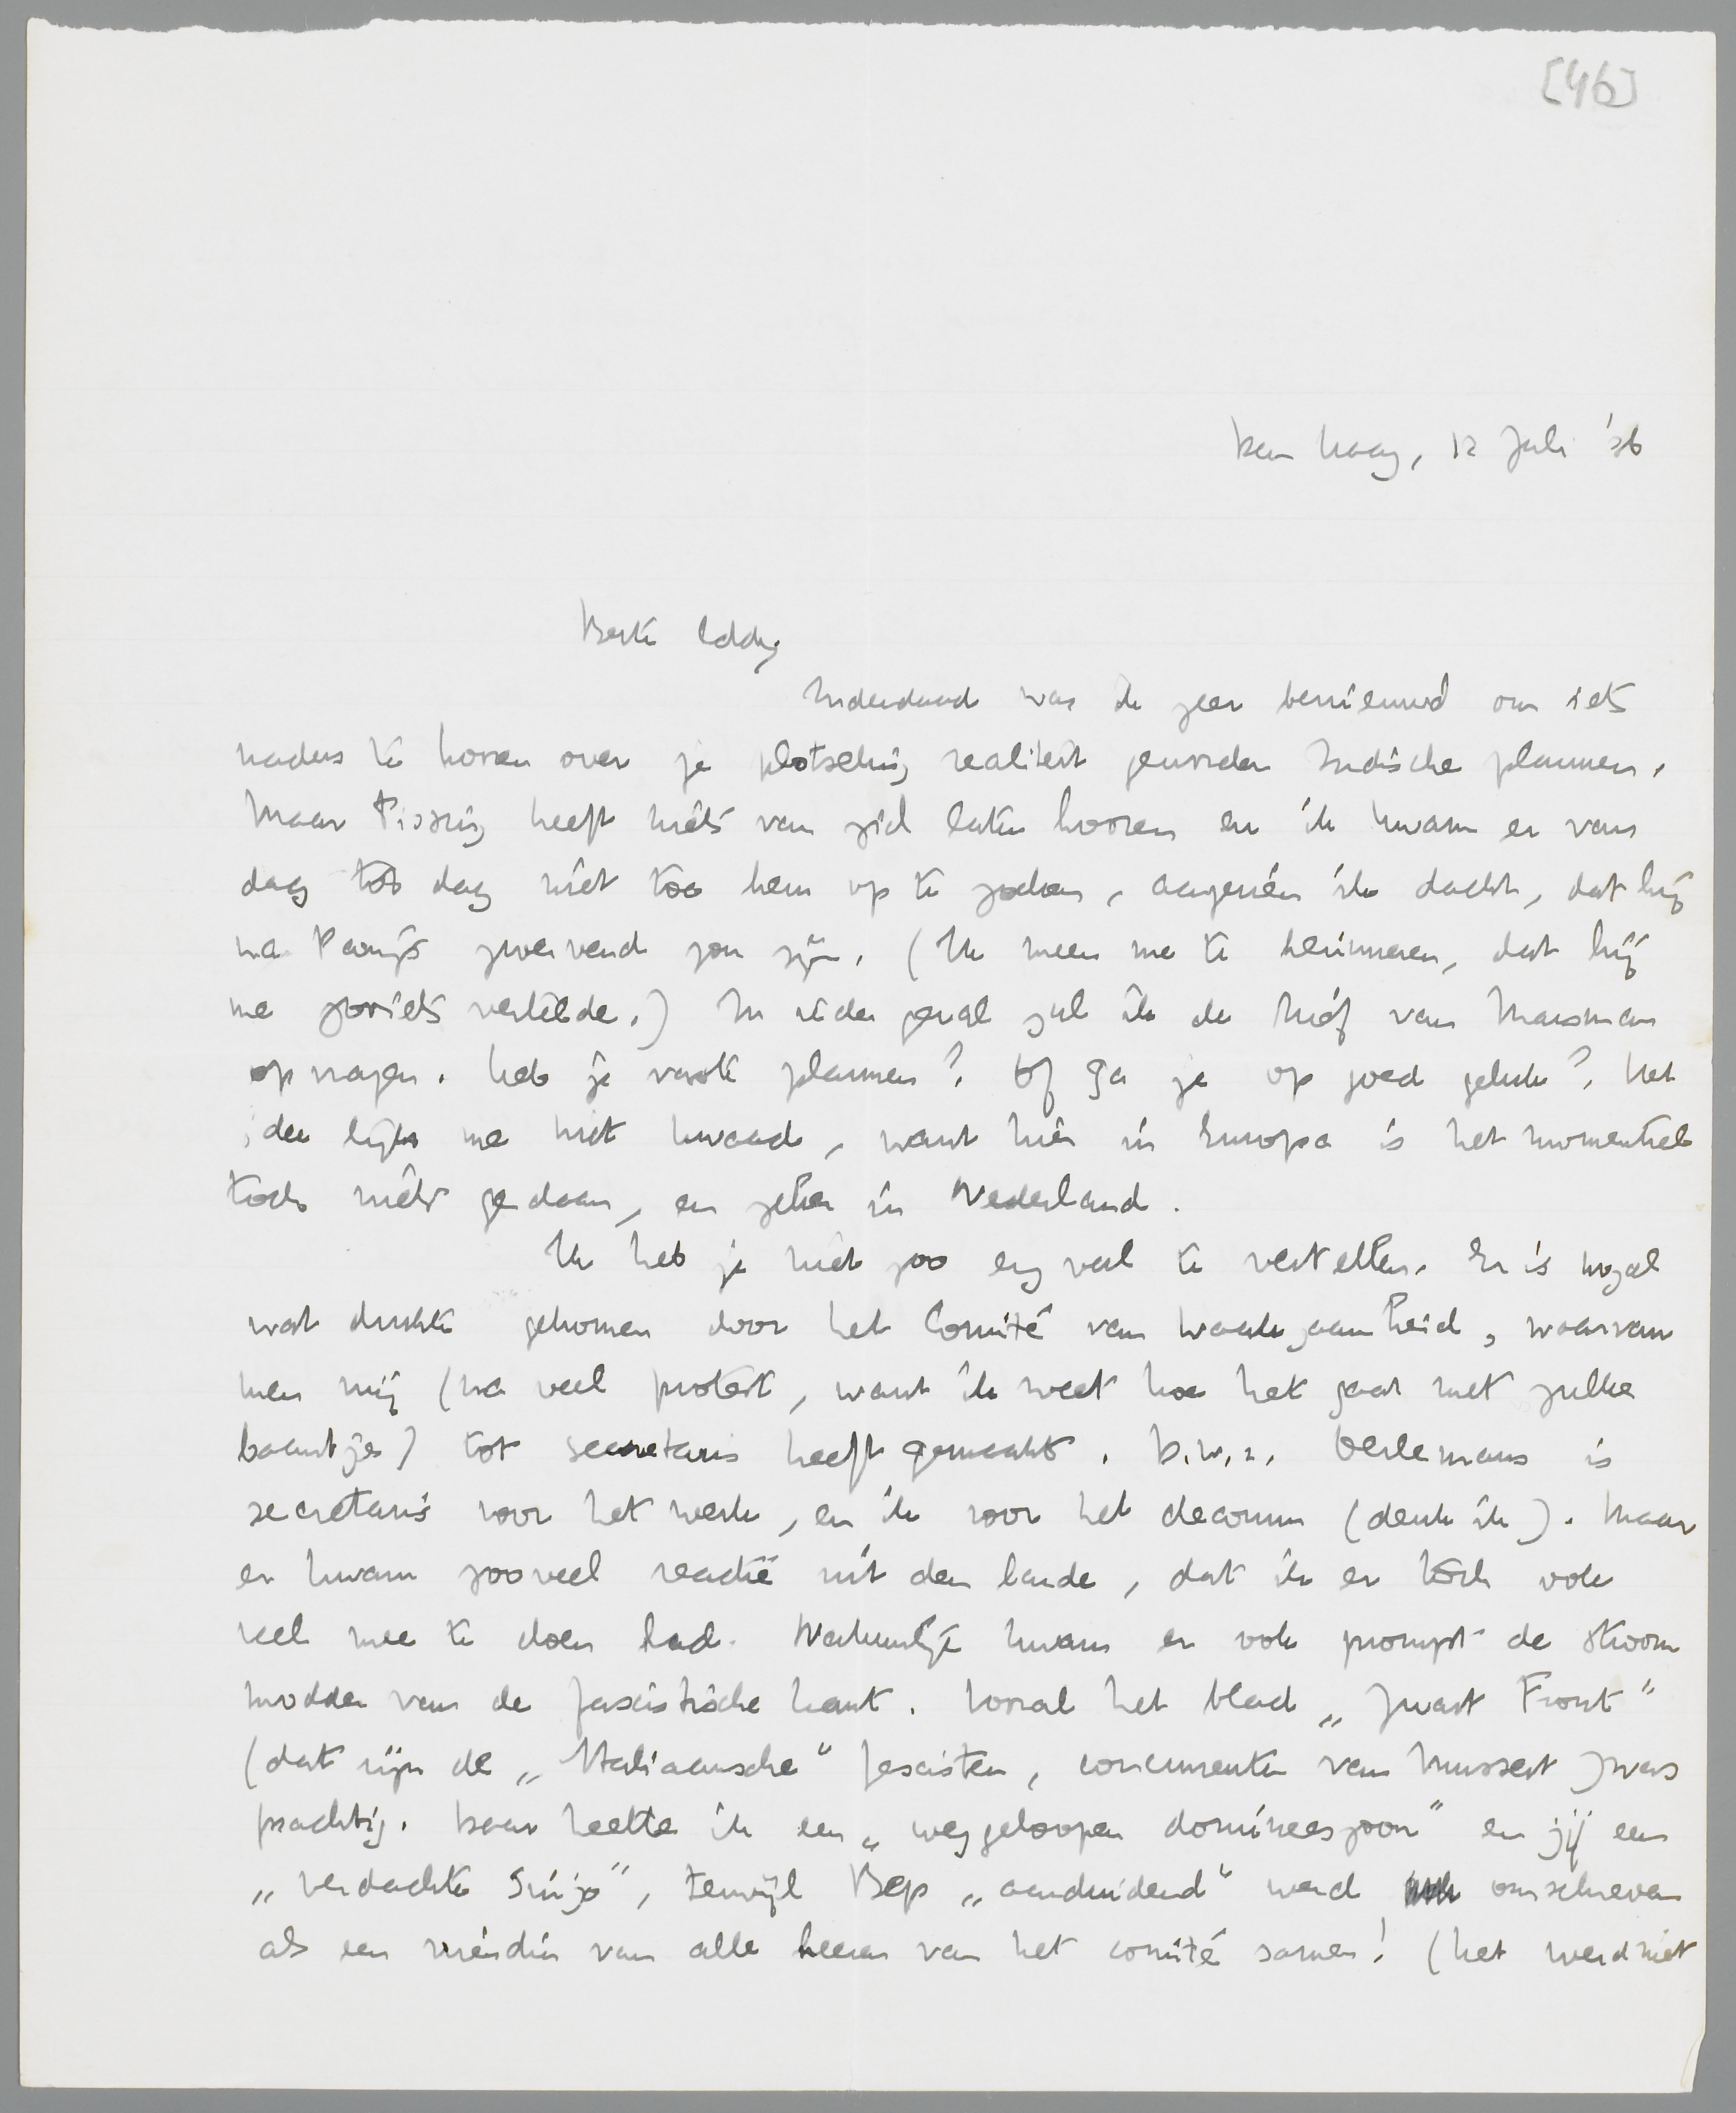 [46]
Den Haag, 12 Juli '36
Beste Eddy
Inderdaad was ik zeer benieuwd om iets
naders te hooren over je plotseling realiteit geworden Indische plannen.
Maar Tissing heeft niets van zich laten hooren en ik kwam er van
dag tot dag niet toe hem op te zoeken, aangezien ik dacht, dat hij
na Parijs zwervend zou zijn. (Ik meen me te herinneren, dat hij
me zooiets vertelde.) In ieder geval zal ik de brief van Marsman
opvragen. Heb je vaste plannen? Of ga je op goed geluk? Het
idee lijkt me niet kwaad, want hier in Europa is het momenteel
toch niets gedaan, en zeker in Nederland.
Ik heb je niet zoo erg veel te vertellen. Er is nogal
wat drukte gekomen door het Comité van Waakzaamheid, waarvan
men mij (na veel protest, want ik weet hoe het gaat met zulke
baantjes) tot secretaris heeft gemaakt. D.w.z. Oerlemans is
secretaris voor het werk, en ik voor het decorum (denk ik). Maar
er kwam zooveel reactie uit den lande, dat ik er toch ook
veel mee te doen had. Natuurlijk kwam er ook prompt de stroom
modder van de fascistische kant. Vooral het blad „Zwart Front"
(dat zijn de „Italiaansche" fascisten, concurrenten van Mussert) was
prachtig. Daar heette ik een „weggeloopen domineeszoon" en jij een
„verdachte Sinjo", terwijl Bep „aanduidend" werd omschreven
als een vriendin van alle heeren van het comité samen! (het werd niet